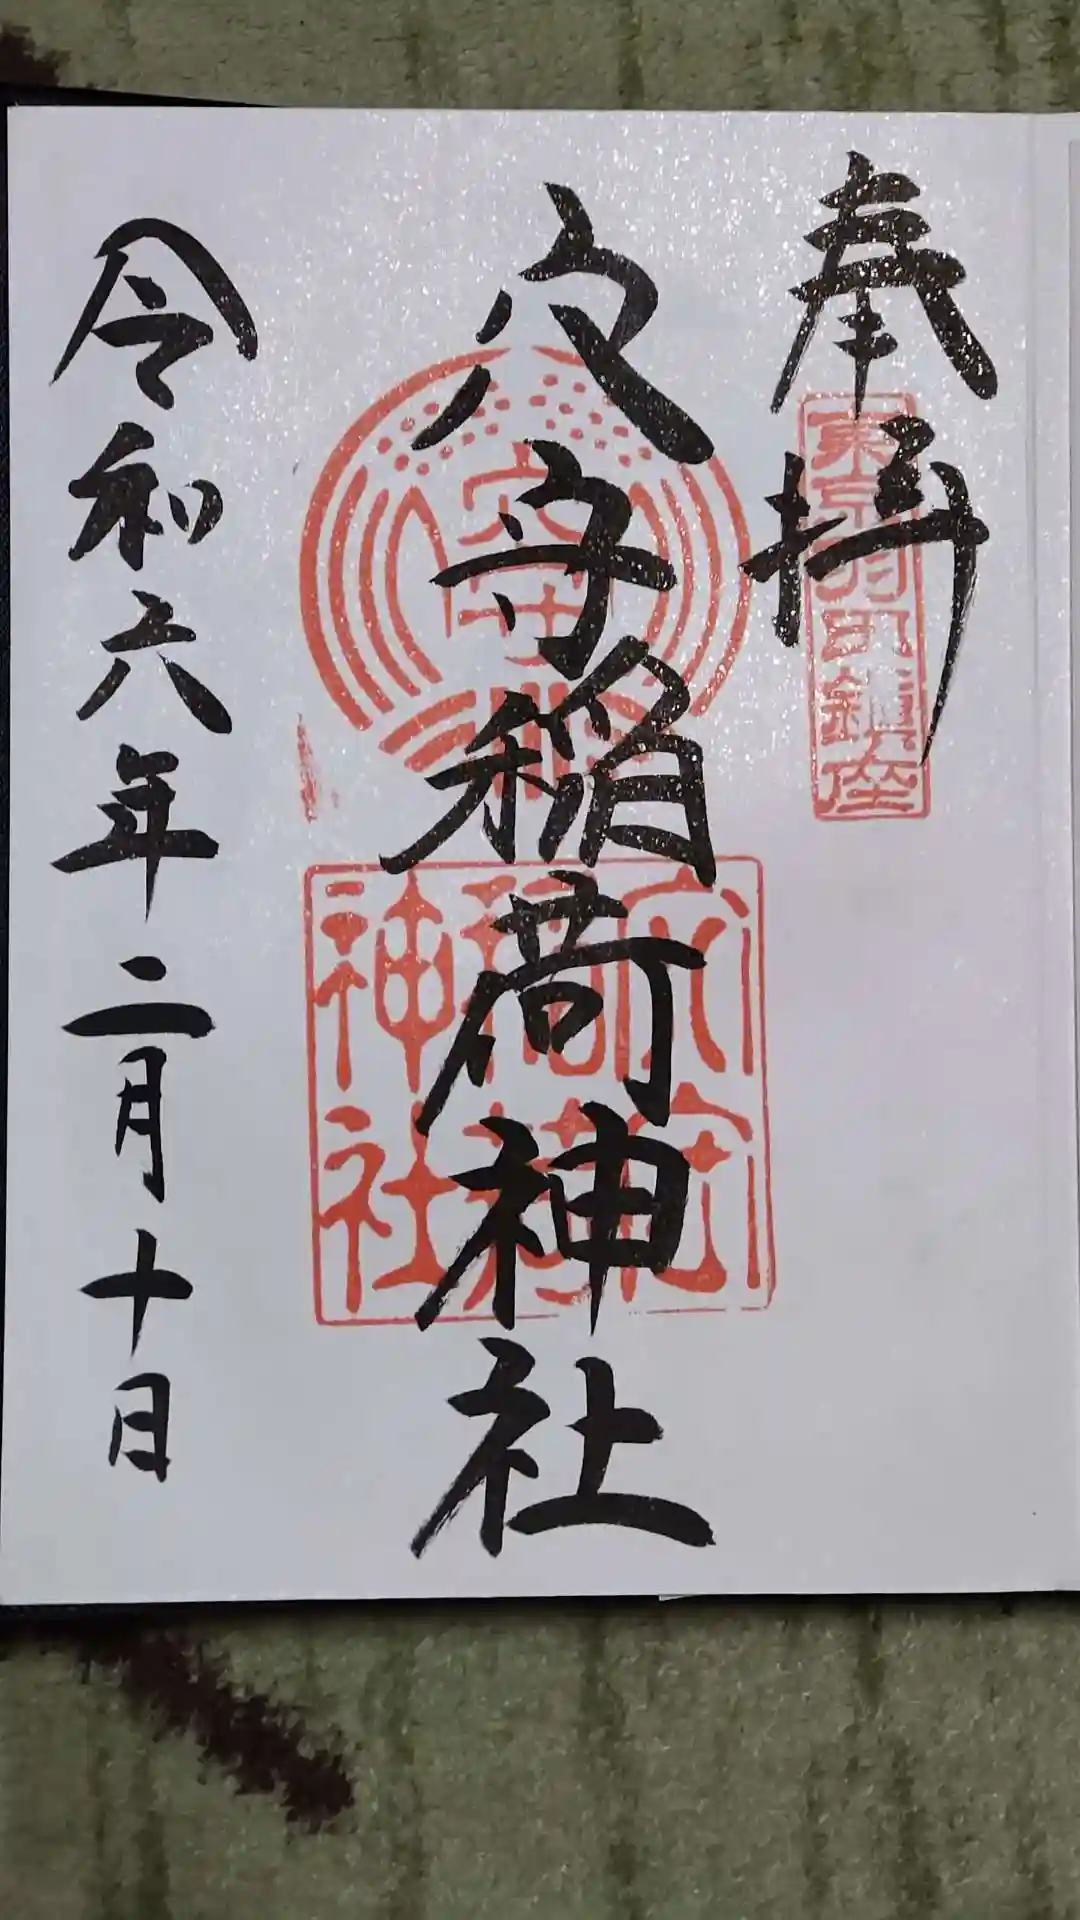 奉拝
東京羽田鎮座
穴守稲荷神社
穴守
穴守稲荷神社
令和六年二月十日